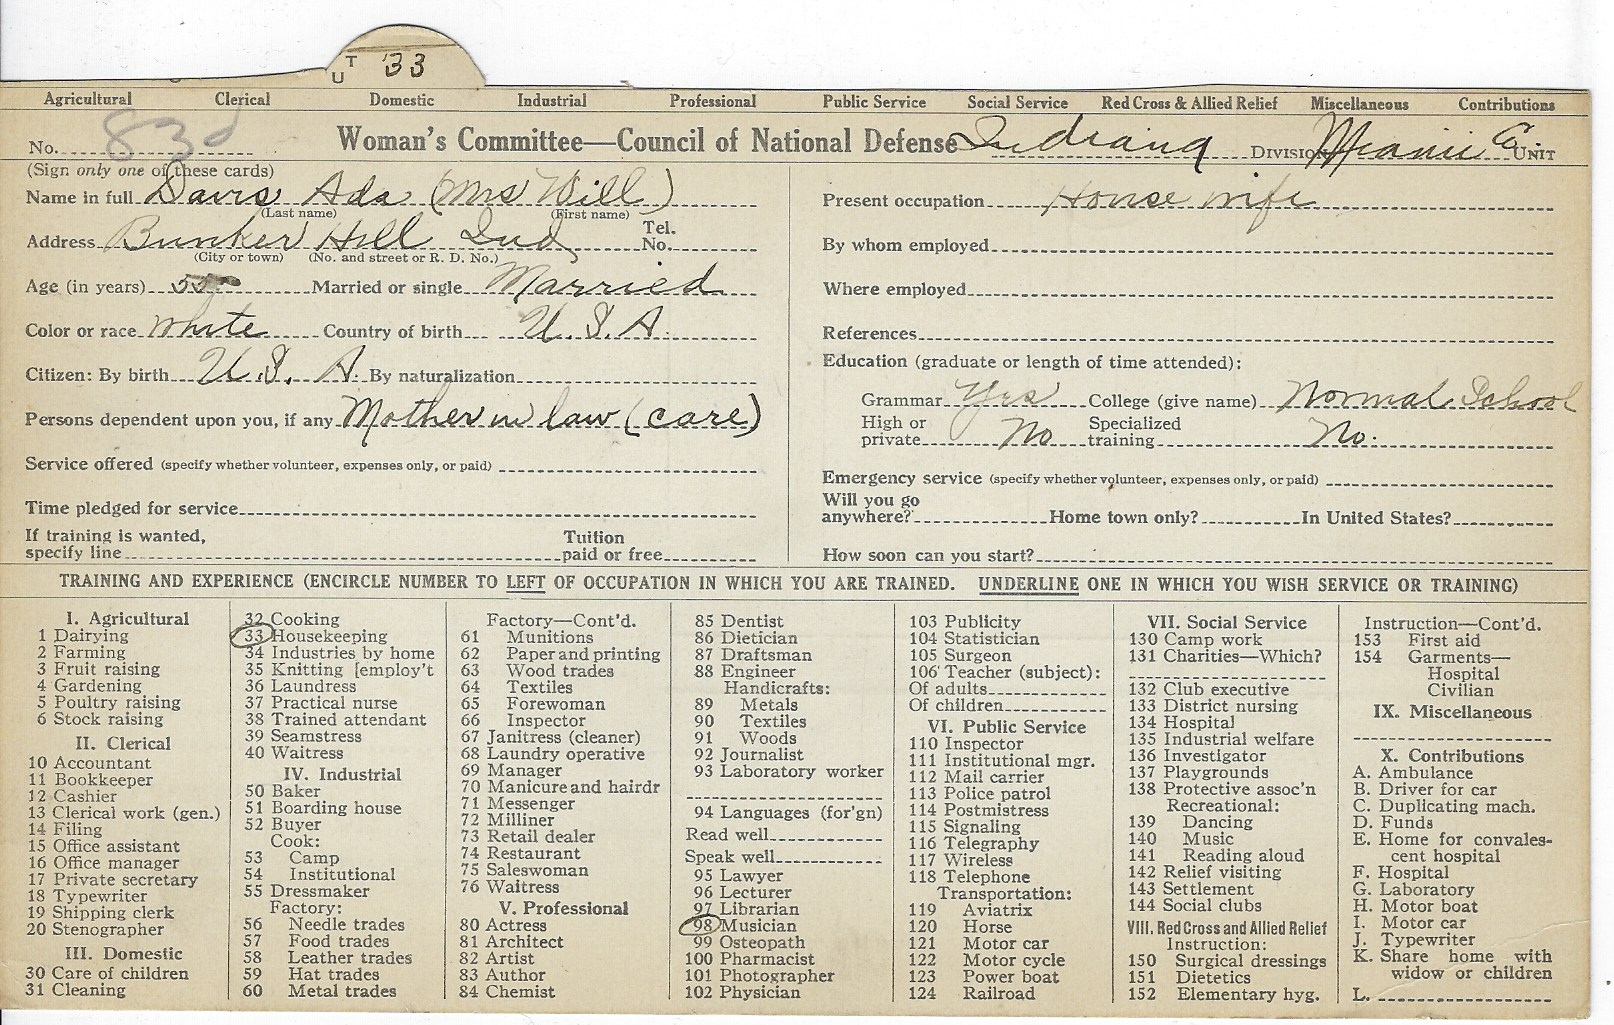 UT 33
Agricultural Clerical Domestic Industrial Professional Public Service Social Service Red Cross & Allied Relief Miscellaneous Contributions
No. 83d Woman's Committee—Council of National Defense Indiana DIVISION Miami Co. UNIT
(Sign only one of these cards)
Name in full Davis Ada (Mrs Will)
(Last name) (First name)
Address Bunker Hill Ind Tel. No.
(City or town) (No. and street or R. D. No.)
Age (in years) 55 Married or single Married
Color or race White Country of birth U.S.A.
Citizen: By birth U.S.A. By naturalization
Persons dependent upon you, if any Mother in law (care)
Service offered (specify whether volunteer, expenses only, or paid)
Time pledged for service
If training is wanted,
specify line Tuition paid or free
Present occupation House wife
By whom employed
Where employed
References
Education (graduate or length of time attended):
Grammar Yes College (give name) Normal School
High or private No Specialized training No.
Emergency service (specify whether volunteer, expenses only, or paid)
Will you go
anywhere? Home town only? In United States?
How soon can you start?
TRAINING AND EXPERIENCE (ENCIRCLE NUMBER TO LEFT OF OCCUPATION IN WHICH YOU ARE TRAINED. UNDERLINE ONE IN WHICH YOU WISH SERVICE OR TRAINING)
I. Agricultural
1 Dairying
2 Farming
3 Fruit raising
4 Gardening
5 Poultry raising
6 Stock raising
II. Clerical
10 Accountant
11 Bookkeeper
12 Cashier
13 Clerical work (gen.)
14 Filing
15 Office assistant
16 Office manager
17 Private secretary
18 Typewriter
19 Shipping clerk
20 Stenographer
III. Domestic
30 Care of children
31 Cleaning
32 Cooking
33 Housekeeping
34 Industries by home
35 Knitting [employ't
36 Laundress
37 Practical nurse
38 Trained attendant
39 Seamstress
40 Waitress
IV. Industrial
50 Baker
51 Boarding house
52 Buyer
Cook:
53 Camp
54 Institutional
55 Dressmaker
Factory:
56 Needle trades
57 Food trades
58 Leather trades
59 Hat trades
60 Metal trades
Factory—Cont'd.
61 Munitions
62 Paper and printing
63 Wood trades
64 Textiles
65 Forewoman
66 Inspector
67 Janitress (cleaner)
68 Laundry operative
69 Manager
70 Manicure and hairdr
71 Messenger
72 Milliner
73 Retail dealer
74 Restaurant
75 Saleswoman
76 Waitress
V. Professional
80 Actress
81 Architect
82 Artist
83 Author
84 Chemist
85 Dentist
86 Dietician
87 Draftsman
88 Engineer
Handicrafts:
89 Metals
90 Textiles
91 Woods
92 Journalist
93 Laboratory worker
94 Languages (for'gn)
Read well
Speak well
95 Lawyer
96 Lecturer
97 Librarian
98 Musician
99 Osteopath
100 Pharmacist
101 Photographer
102 Physician
103 Publicity
104 Statistician
105 Surgeon
106 Teacher (subject):
Of adults
Of children
VI. Public Service
110 Inspector
111 Institutional mgr.
112 Mail carrier
113 Police patrol
114 Postmistress
115 Signaling
116 Telegraphy
117 Wireless
118 Telephone
Transportation:
119 Aviatrix
120 Horse
121 Motor car
122 Motor cycle
123 Power boat
124 Railroad
VII. Social Service
130 Camp work
131 Charities—Which?
132 Club executive
133 District nursing
134 Hospital
135 Industrial welfare
136 Investigator
137 Playgrounds
138 Protective assoc'n
Recreational:
139 Dancing
140 Music
141 Reading aloud
142 Relief visiting
143 Settlement
144 Social clubs
VIII. Red Cross and Allied Relief
Instruction:
150 Surgical dressings
151 Dietetics
152 Elementary hyg.
Instruction—Cont'd.
153 First aid
154 Garments—
Hospital
Civilian
IX. Miscellaneous
X. Contributions
A. Ambulance
B. Driver for car
C. Duplicating mach.
D. Funds
E. Home for convales-
cent hospital
F. Hospital
G. Laboratory
H. Motor boat
I. Motor car
J. Typewriter
K. Share home with
widow or children
L.